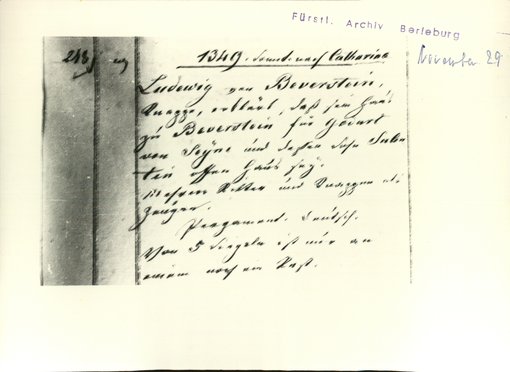 Fürstl. Archiv Berleburg
November 29
243
1349. Sonnt. nach Catharina
Ludewig von Beverstein,
Knappe, erklärt, daß sein Haus
zu Beverstein für Godart
von Seyne und dessen Sohn Salen
tin offen Haus sey.
Mehrere Ritter und Knappen als
Zeugen.
Pergament. Deutsch.
Von 5 Siegeln ist nur an
einem noch ein Rest.